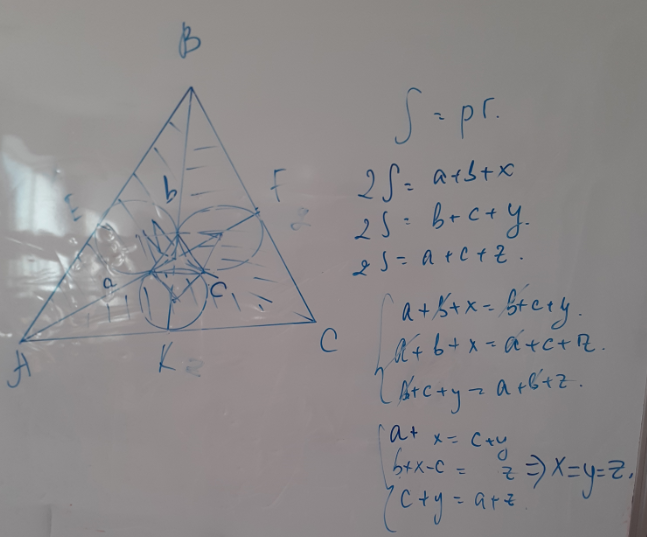 B
E
b
F
z
a
c
A
K
z
C
S = pr.
2S = a+b+x
2S = b+c+y.
2S = a+c+z.
a+b+x = b+c+y.
a+b+x = a+c+z.
b+c+y = a+b+z.
a+ x = c+y
b+x-c = z => x=y=z.
c+y = a+z